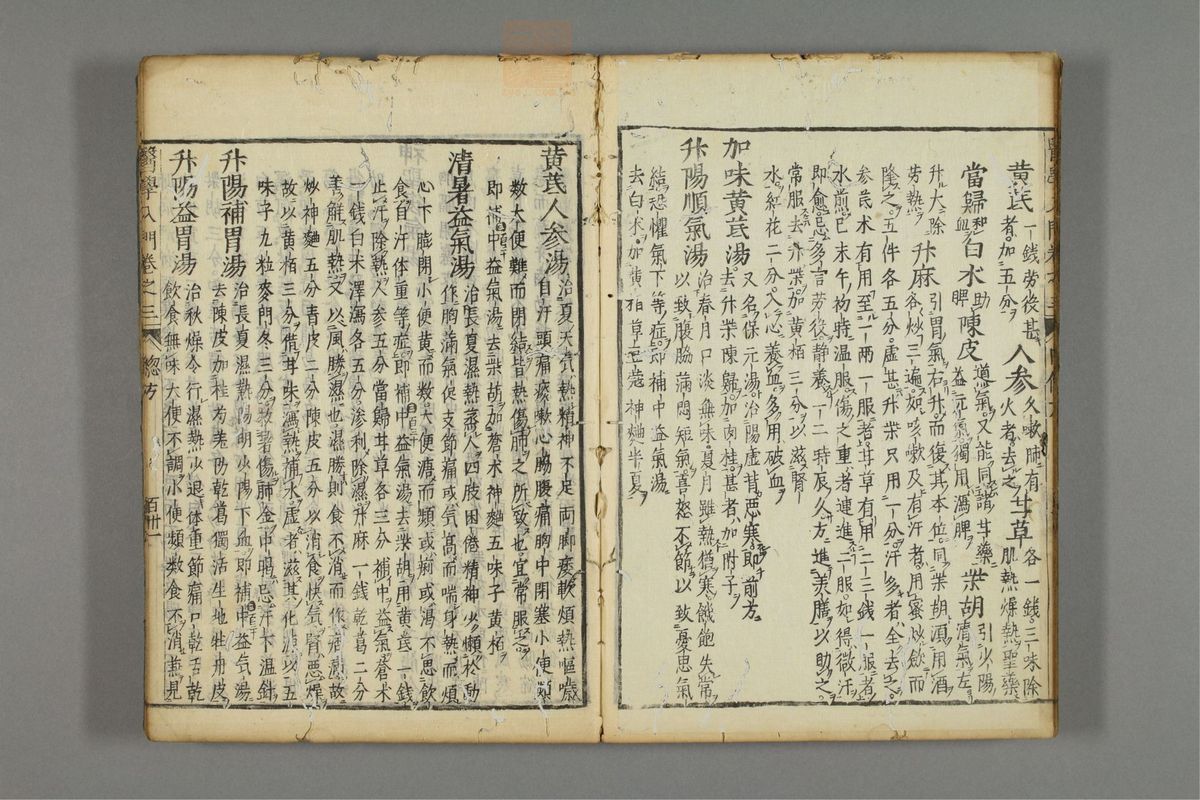 黄芪一錢勞役甚者加五分人参久嗽肺有火者去之甘草各一錢三味除肌熱燥熱聖藥
當歸和血白朮助脾陳皮道氣又能同諸甘藥益元氣獨用瀉脾柴胡引少陽清氣左
升大除勞熱升麻引胃氣右升而復其本位同柴胡須用酒各炒三遍如咳嗽及有汗者用蜜炒飲而
降之五件各五分虛甚升柴只用一二分汗多者全去之
参芪朮有用至一兩一服者甘草有用二三錢一服者
水煎巳末午初時温服傷之重者連進二服如得微汗
即愈忌多言勞役靜養一二時辰久方進美膳以助之
常服去升柴加黄栢三分以滋腎
水紅花二分入心養血多用破血
加味黄芪湯又名保元湯治陽虛昔惡寒即前方去升柴陳歸加肉桂甚者加附子
升陽順氣湯治春月口淡無味夏月雖熱猶寒餓飽失常以致腹脇滿悶短氣喜怒不節以致憂思氣
結恐懼氣下等症即補中益氣湯
去白朮加黄栢草豆蔻神麯半夏
黄芪人参湯治夏天氣熱精神不足兩脚痿軟煩熱嘔噦自汗頭痛痰嗽心腸腹痛胸中閉塞小便頻
數大便難而閉結皆熱傷肺之所致也宜常服之
即補中益氣湯去柴胡加蒼朮神麯五味子黄栢
清暑益氣湯治長夏濕熱蒸人四肢困倦精神少懶於動作胸滿氣促支節痛或氣高而喘身熱而煩
心下膨閉小便黄而數大便溏而頻或痢或瀉不思飲
食自汗体重等症即補中益氣湯去柴胡用黄芪一錢
止汗除熱人参五分當歸甘草各三分補中益氣蒼朮
一錢白朮澤瀉各五分滲利除濕升麻一錢乾葛二分
善解肌熱又以風勝濕也濕勝則食不消而作痞滿故
炒神麯五分青皮二分陳皮五分以消食快氣腎惡燥
故以黄栢三分借甘味瀉熱補水虛者滋其化源以五
味子九粒麥門冬三分救暑傷肺金中暍忌汗下温針
升陽補胃湯治長夏濕熱陽胡少陽下血即補中益氣湯去陳皮加桂芍羌防乾葛獨活生地牡丹皮
升陽益胃湯治秋燥令行濕熱少退体重節痛口乾舌乾飲食無味大便不調小便頻數食不消兼見
醫學入門卷之三
總方
百卅一